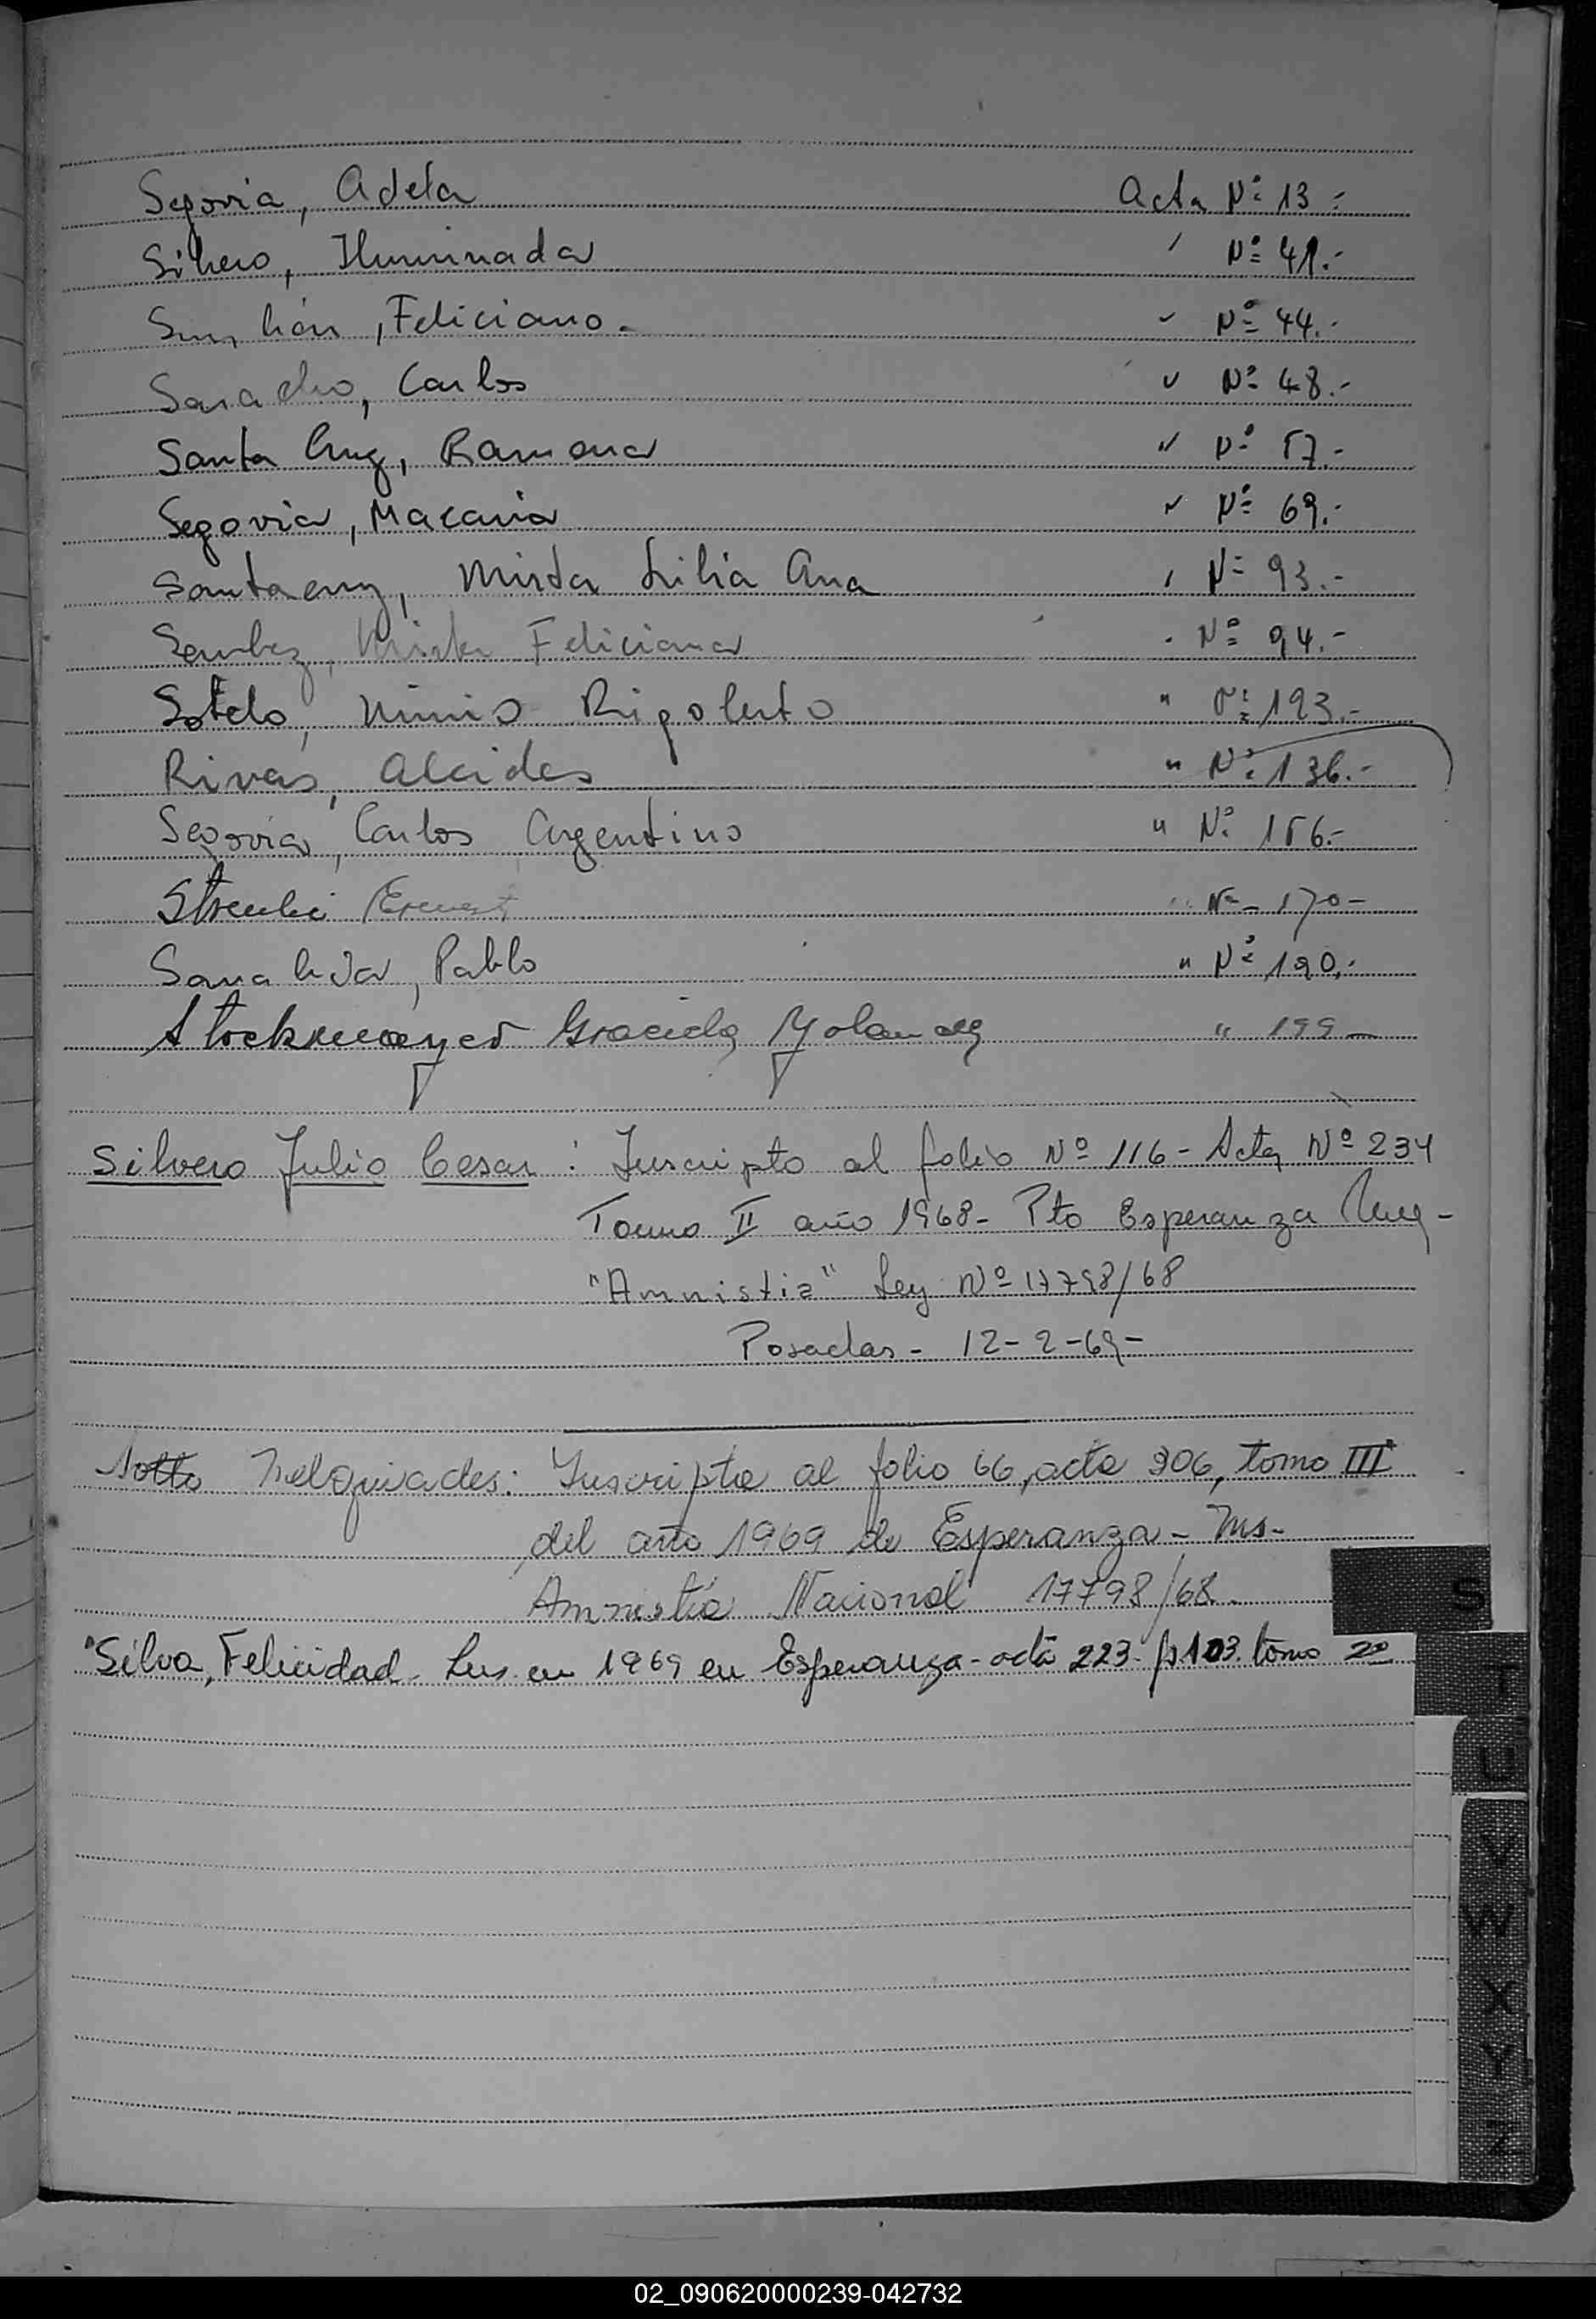 Segovia, Adela Acta Nº 13.-
Silvero, Iluminada " Nº 41.-
Feliciano.- " Nº 44.-
Saracho, Carlos " Nº 48.-
Santa Cruz, Ramona " Nº 57.-
Segovia, Macaria " Nº 69.-
Santacruz, Mirta Lilia Ana " Nº 93.-
Feliciana " Nº 94.-
Sotelo, Rigoberto " Nº 123.-
Rivas, Alcides " Nº 136.-
Segovia, Carlos Argentino " Nº 156.-
Ernest " Nº - 170 -
Sanabria, Pablo " Nº 190.-
Stockmayer Graciela Yolanda " 199 -
Silvero Julio Cesar : Inscripto al folio Nº 116 - Acta Nº 234
Tomo II año 1968 - Pto Esperanza
"Amnistia" Ley Nº 17798/68
Posadas - 12-2-69-
Sotto Melquiades: Inscripto al folio 66, acta 306, tomo III
del año 1969 de Esperanza - Ms-
Amnistía Nacional 17798/68.
Silva, Felicidad. Ins. en 1969 en Esperanza - acta 223 - fº 103. tomo 2º
S
T
U
V
W
X
Y
Z
02_090620000239-042732